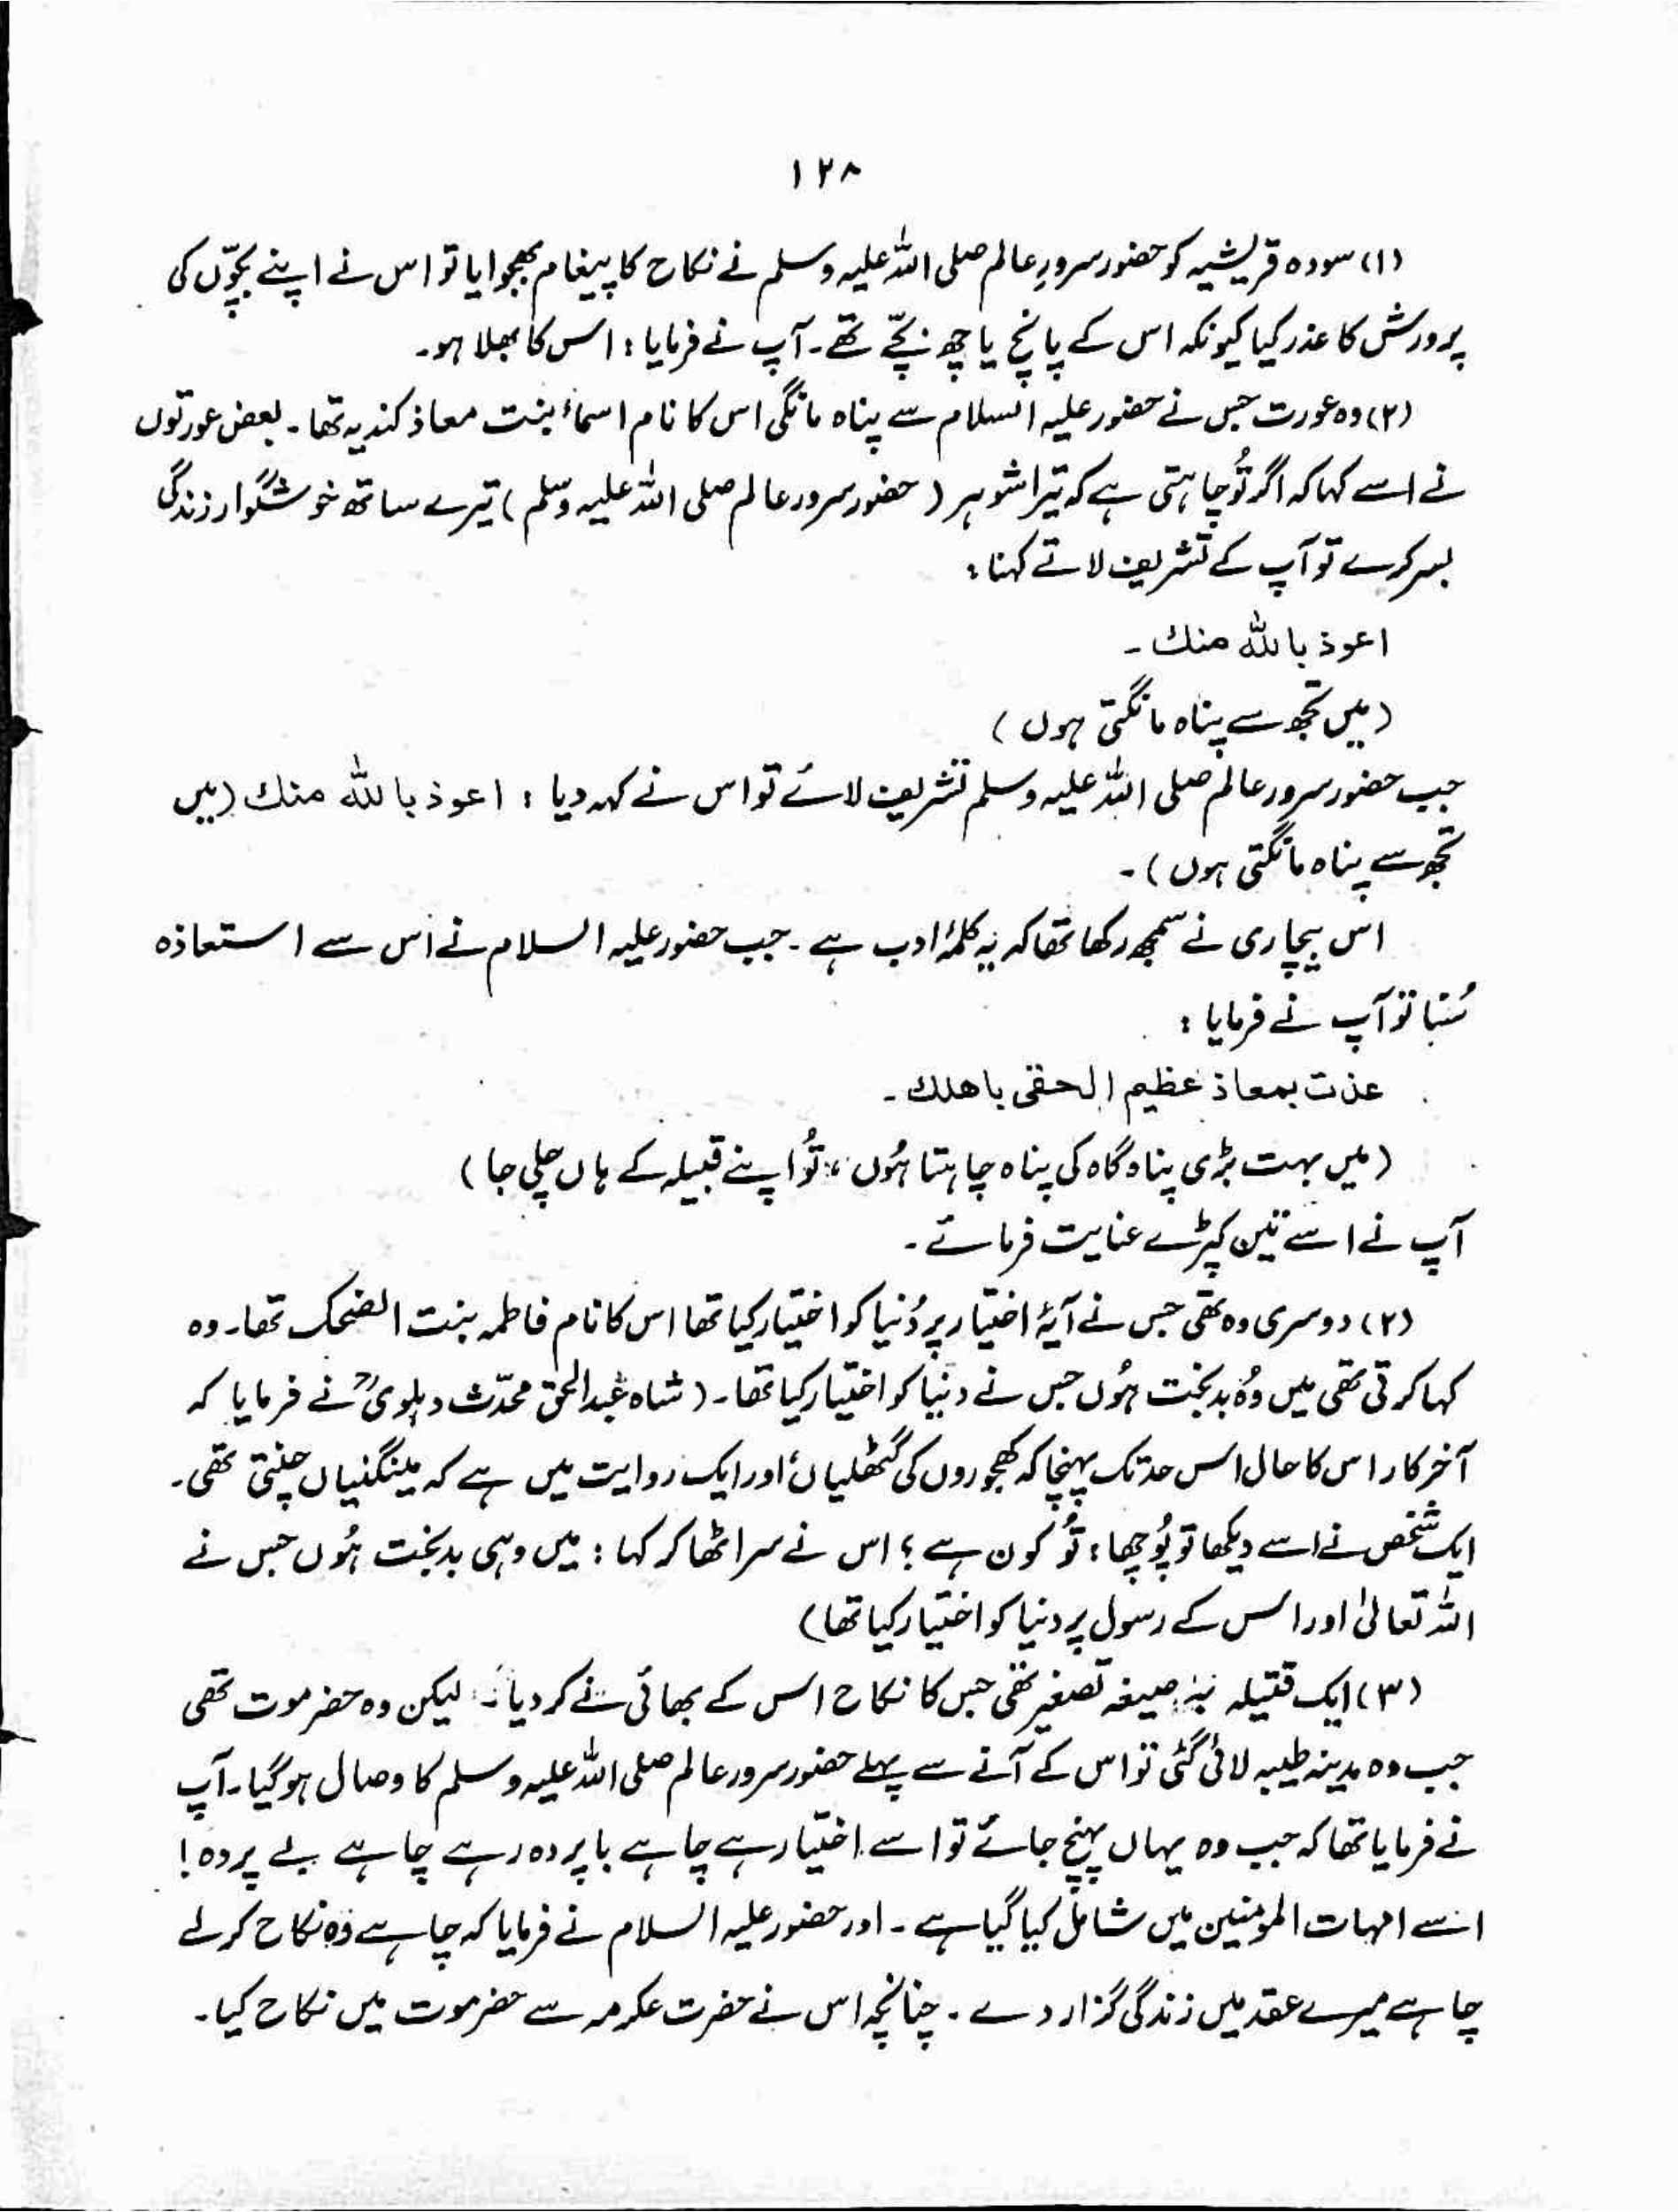 ۱۲۸
(۱) سودہ قریشیہ کو حضور سرورِ عالم صلی اللہ علیہ وسلم نے نکاح کا پیغام بھجوایا تو اس نے اپنے بچّوں کی
پرورش کا عذر کیا کیونکہ اس کے پانچ یا چھ بچّے تھے۔ آپ نے فرمایا : اس کا بھلا ہو۔
(۲) وہ عورت جس نے حضور علیہ السلام سے پناہ مانگی اس کا نام اسمائ بنت معاذ کندیہ تھا۔ بعض عورتوں
نے اسے کہا کہ اگر تُو چاہتی ہے کہ تیرا شوہر ( حضور سرور عالم صلی اللہ علیہ وسلم ) تیرے ساتھ خوشگوار زندگی
بسر کرے تو آپ کے تشریف لاتے کہنا :
اعوذ باللہ منك ۔
( میں تجھ سے پناہ مانگتی ہوں )
جب حضور سرور عالم صلی اللہ علیہ وسلم تشریف لائے تو اس نے کہہ دیا : اعوذ باللہ منك (میں
تجھ سے پناہ مانگتی ہوں ) ۔
اس بیچاری نے سمجھ رکھا تھا کہ یہ کلمۂ ادب ہے ۔ جب حضور علیہ السلام نے اس سے استعاذہ
سُنا تو آپ نے فرمایا :
عذت بمعاذ عظیم الحقی باھلك ۔
( میں بہت بڑی پناہ گاہ کی پناہ چاہتا ہُوں ، تُو اپنے قبیلہ کے ہاں چلی جا )
آپ نے اسے تین کپڑے عنایت فرمائے ۔
(۲) دوسری وہ تھی جس نے آیۂ اختیار پر دُنیا کو اختیار کیا تھا اس کا نام فاطمہ بنت الضحک تھا۔ وہ
کہا کرتی تھی میں وُہ بدبخت ہُوں جس نے دنیا کو اختیار کیا تھا۔ ( شاہ عبدالحق محدّث دہلویؒ نے فرمایا کہ
آخرکار اس کا حال اس حد تک پہنچا کہ کھجوروں کی گٹھلیاں اور ایک روایت میں ہے کہ مینگنیاں چنتی تھی۔
ایک شخص نے اسے دیکھا تو پُوچھا : تُو کون ہے ؟ اس نے سر اٹھا کر کہا : میں وہی بدبخت ہُوں جس نے
اللہ تعالیٰ اور اس کے رسول پر دنیا کو اختیار کیا تھا )
(۳) ایک قتیلہ بہ صیغہ تصغیر تھی جس کا نکاح اس کے بھائی نے کر دیا ۔ لیکن وہ حضرموت تھی
جب وہ مدینہ طیبہ لائی گئی تو اس کے آنے سے پہلے حضور سرور عالم صلی اللہ علیہ وسلم کا وصال ہو گیا۔ آپ
نے فرمایا تھا کہ جب وہ یہاں پہنچ جائے تو اسے اختیار ہے چاہے باپردہ رہے چاہے بے پردہ !
اسے امہات المومنین میں شامل کیا گیا ہے ۔ اور حضور علیہ السلام نے فرمایا کہ چاہے وہ نکاح کرلے
چاہے میرے عقد میں زندگی گزار دے ۔ چنانچہ اس نے حضرت عکرمہ سے حضرموت میں نکاح کیا۔